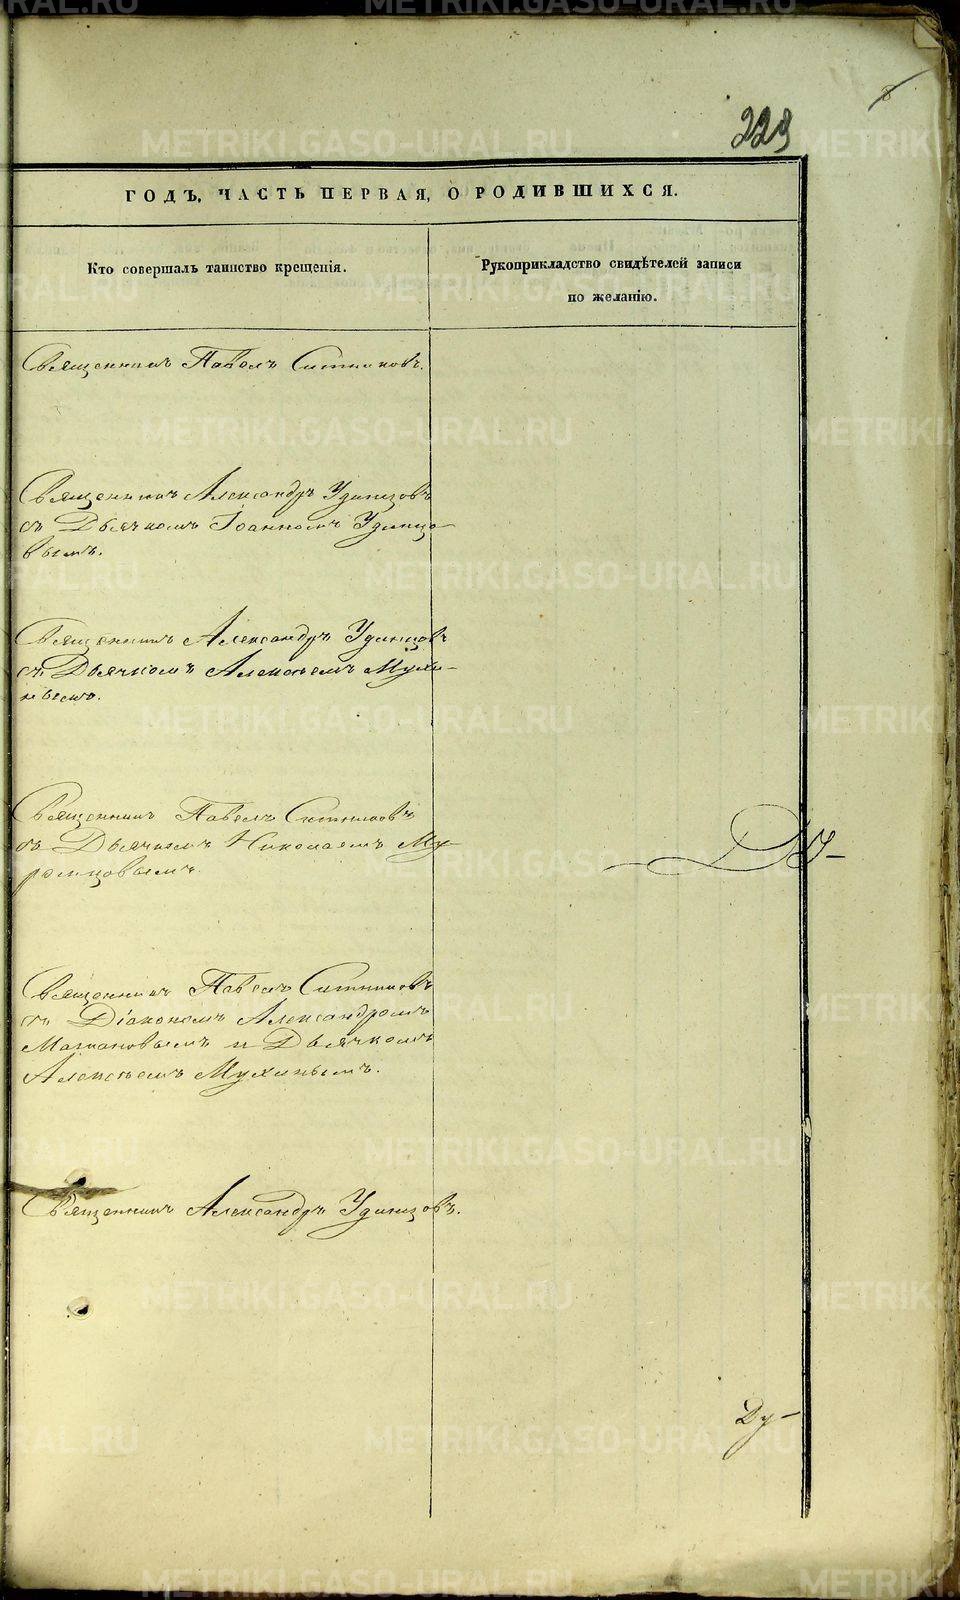 8
229
ГОДЪ, ЧАСТЬ ПЕРВАЯ, О РОДИВШИХСЯ.
Кто совершалъ таинство крещенія.
Рукоприкладство свидѣтелей записи
по желанію.
Священникъ Павелъ Ситниковъ.
Священникъ Александръ Удинцовъ
съ Дьячкомъ Іоанномъ Удинцо-
вымъ.
Священникъ Александръ Удинцовъ
съ Дьячкомъ Алексѣемъ Мухи-
нымъ.
Священникъ Павелъ Ситниковъ
съ Дьячкомъ Николаемъ Му-
Священникъ Павелъ Ситниковъ
съ Діакономъ Александромъ
и Дьячкомъ
Алексѣемъ Мухинымъ.
Священникъ Александръ Удинцовъ.
Ду-
METRIKI.GASO-URAL.RU